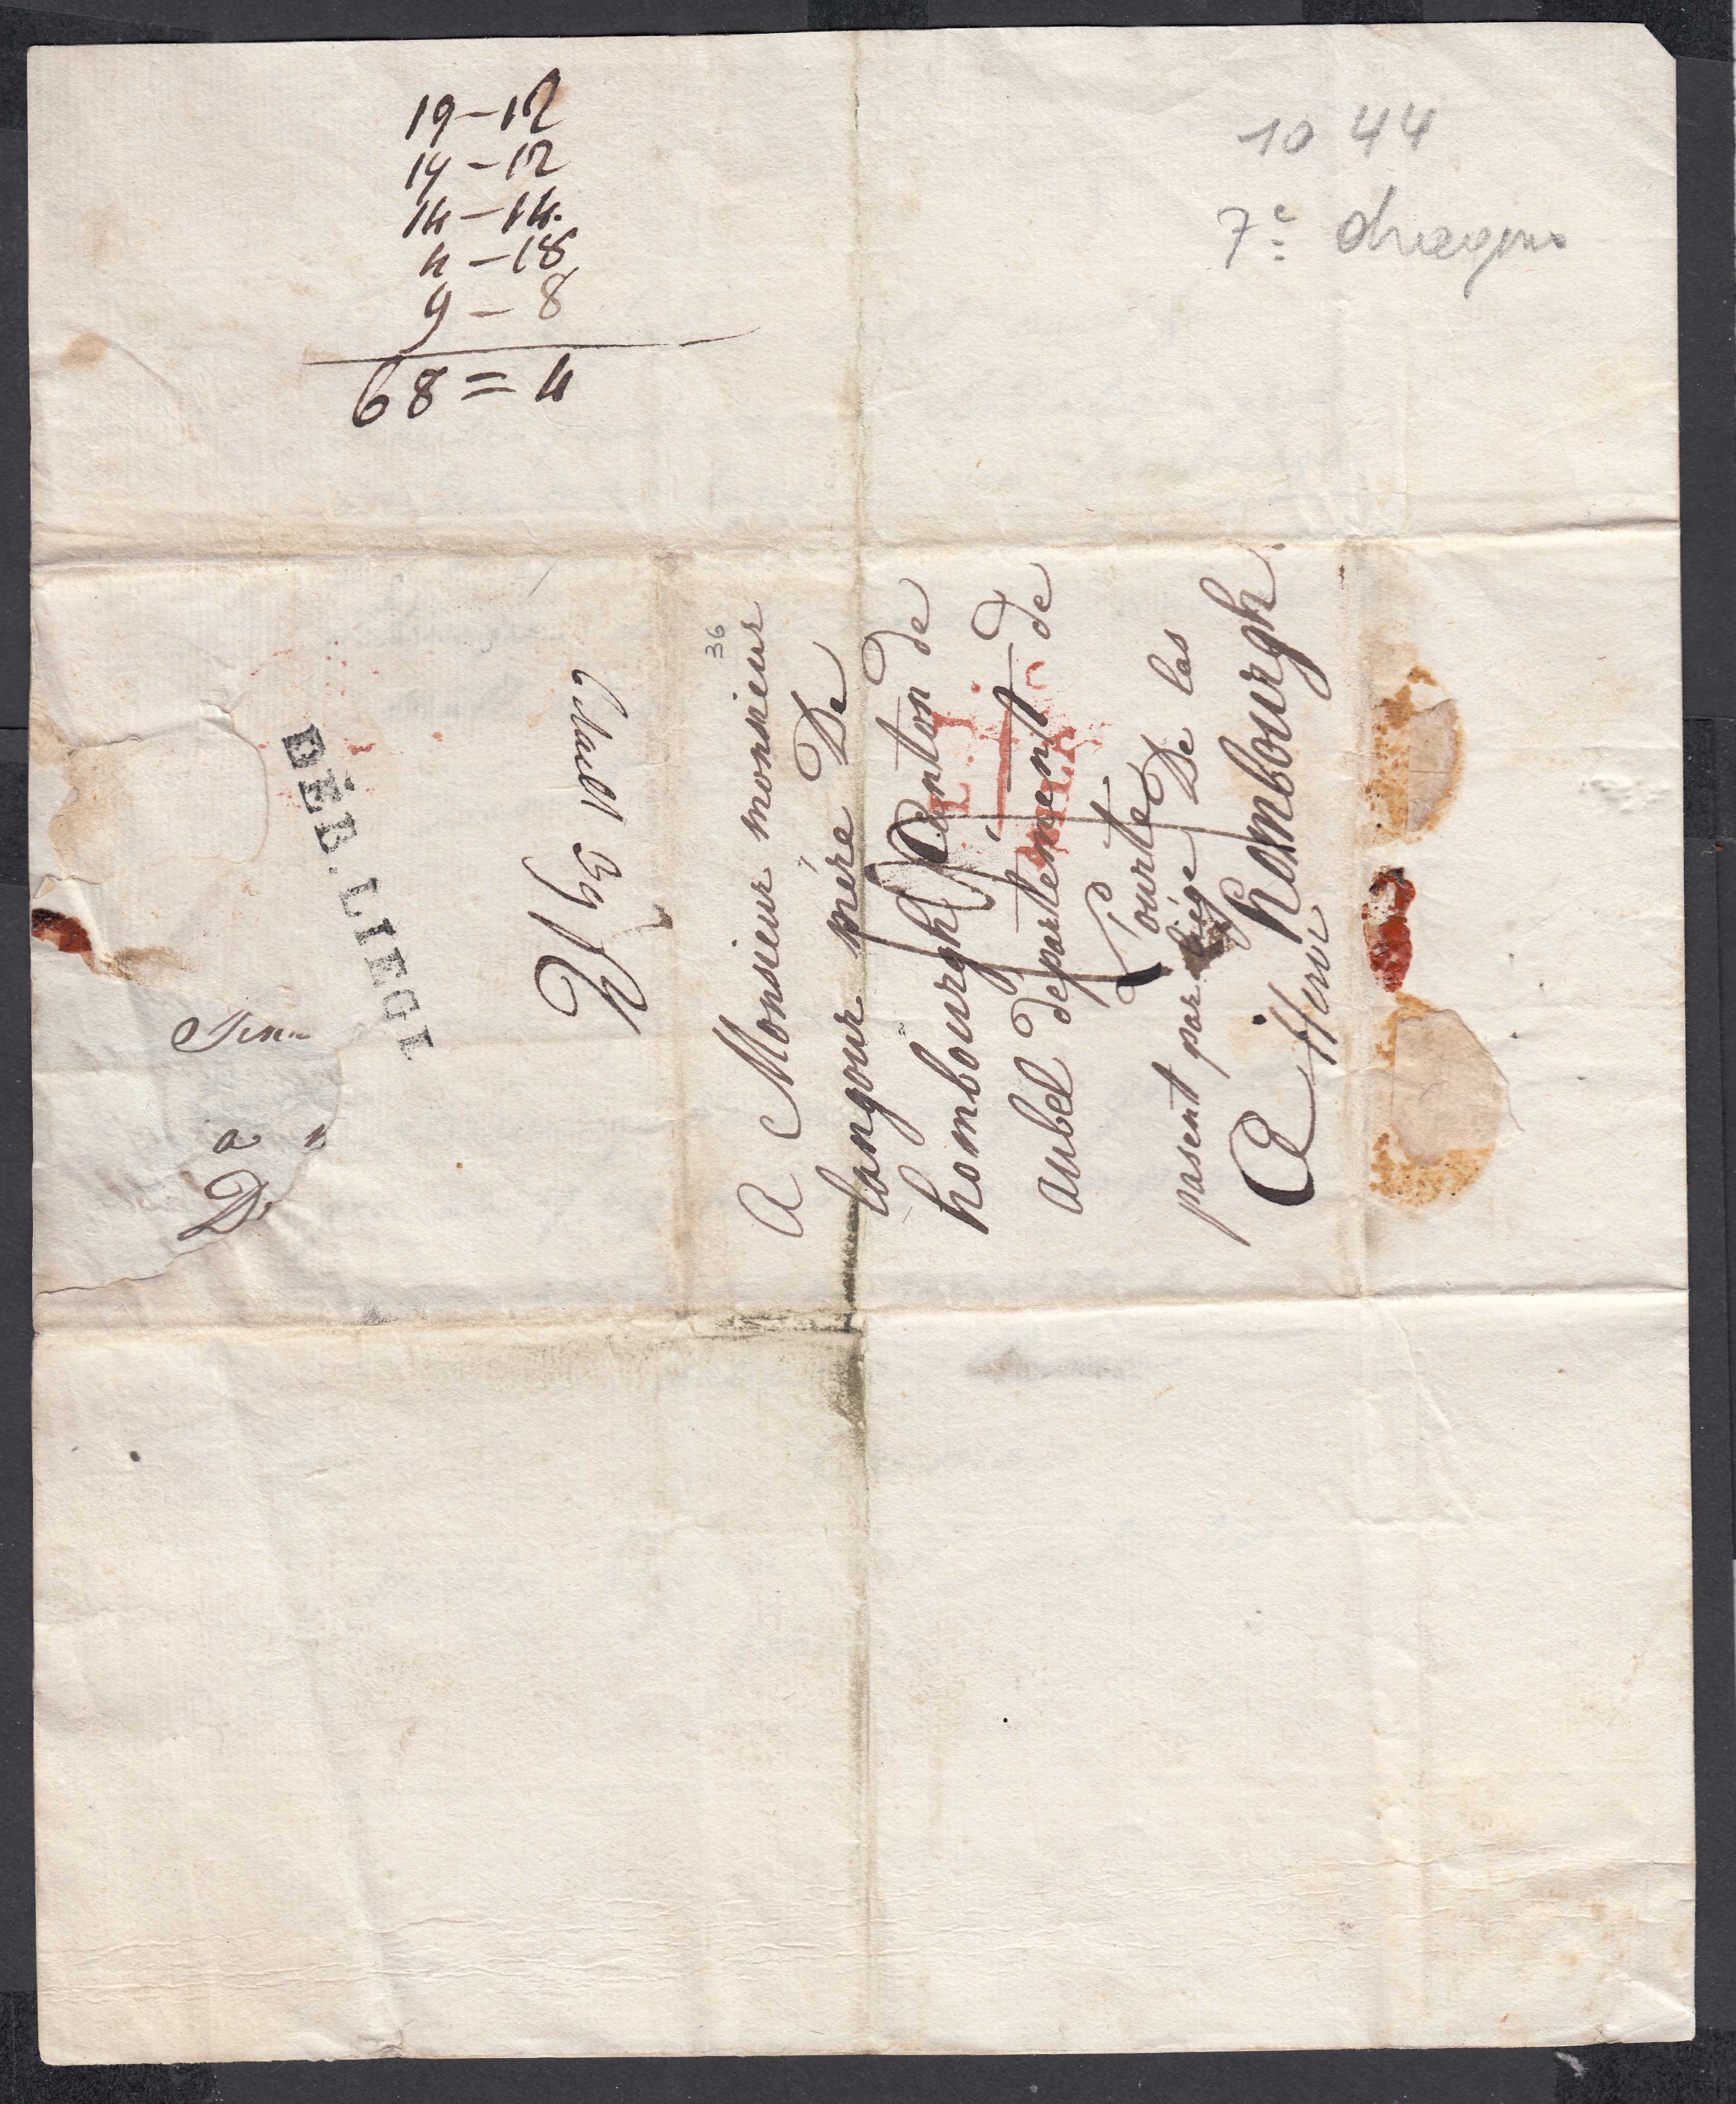 19-12
14-12
14-14
4-18
9-8
68=4
10 44
7e dragons
DÉB.LIEGE
a
De
36
a Monsieur monsieur
langour mére De
hombourgh Canton de
aubel departement de
l'ourte
pasent par liége De las
A hombourgh
Herve